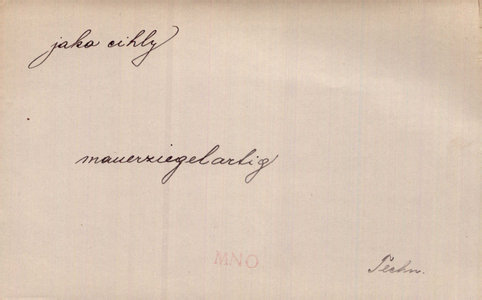 jako cihly
mauerziegelartig
MNO
Techn.